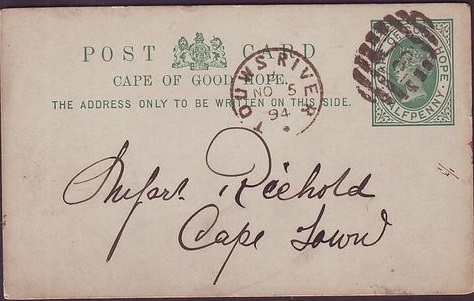 POST CARD
CAPE OF GOOD HOPE.
THE ADDRESS ONLY TO BE WRITTEN ON THIS SIDE.
CAPE OF GOOD HOPE
HALFPENNY
TOUWS RIVER
NO 5
94
Riehold
Cape Town